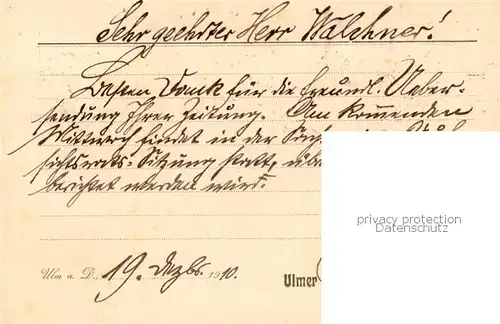 Sehr geehrter Herr Walchner!
Besten Dank für die freundl. Ueber-
sendung Ihrer Zeitung. Am kommenden
Mittwoch findet in der
sichtsrats-Sitzung statt, übe
berichtet werden wird.
Ulm a. D., 19. Dezbr. 1910.
Ulmer
privacy protection
Datenschutz